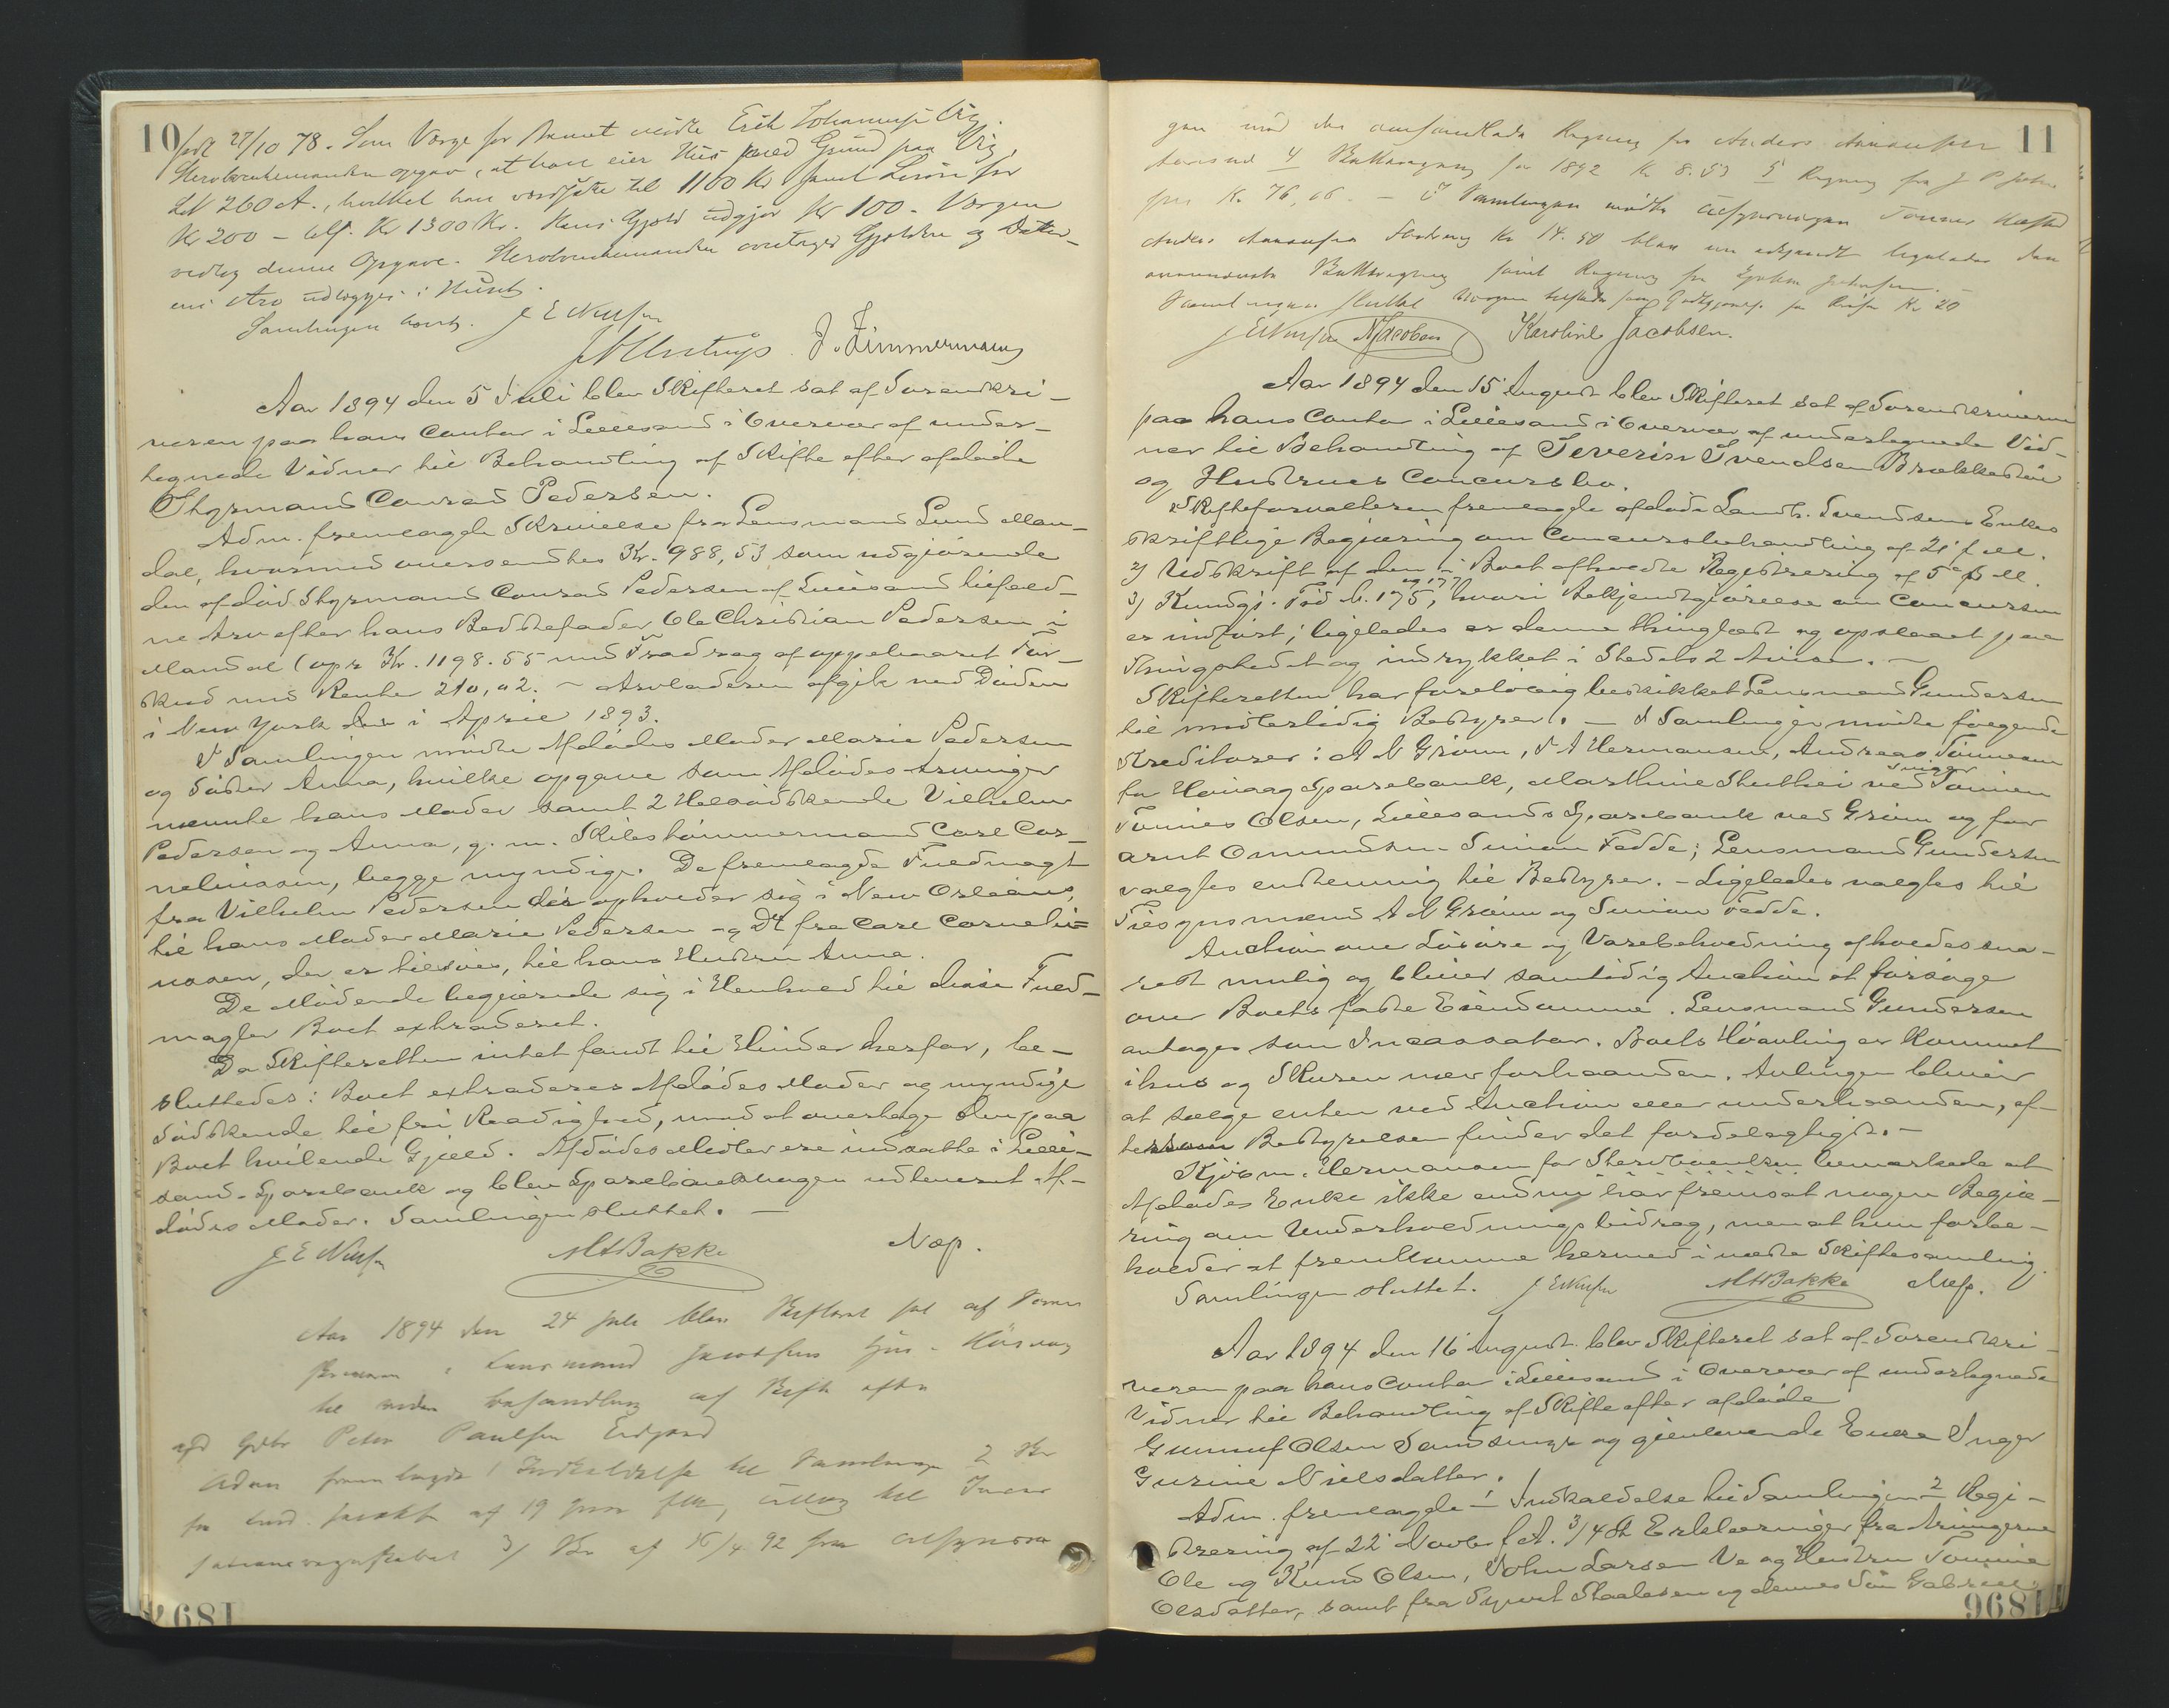 10
født 27/10 78. Som Værge for Barnet mødte Erik Johannesen Vig.
Stervboenkemanden opgav, at han eier Hus med Grund paa Vig,
LN 260 A., hvilket han værdsatte til 1100 Kr samt Løsøre for
Kr 200 - tils. Kr 1300 Kr. Hans Gjæld udgjør Kr 100 - Værgen
vedtog denne Opgave. Stervboenkemanden overtager Gjælden og Datter-
ens Arv udlægges i Huset.
Samlingen hævet. J E Nielsen
J. Zimmermann
Aar 1894 den 5 Juli blev Skifteret sat af Sorenskri-
veren paa hans Contor i Lillesand i Overvær af under-
tegnede Vidner til Behandling af Skifte efter afdøde
Styrmand Conrad Pedersen.
Adm. fremlagde Skrivelse fra Lensmand Lund Man-
dal, hvormed oversendtes Kr. 988,53 som udgjørende
den afdød Styrmand Conrad Pedersen af Lillesand tilfald-
ne Arv efter hans Bedstefader Ole Christian Pedersen i
Mandal (opr Kr. 1198.55 med Fradrag af oppebaaret For-
skud med Renter 210,02. - Arvladeren afgik ved Døden
i New York den i April 1893.
I Samlingen mødte Afdødes Moder Marie Pedersen
og Søster Anna, hvilke opgave som Afdødes Arvinger
nævnte hans Moder samt 2 Helsødskende Vilhelm
Pedersen og Anna, g. m. Skibstømmermand Carl Cor-
neliussen, begge myndige. De fremlagde Fuldmagt
fra Vilhelm Pedersen der opholder sig i New Orleans,
til hans Moder Marie Pedersen og Dt fra Carl Corneli-
ussen, der er tilsøes, til hans Hustru Anna.
De Mødende begjærede sig i Henhold til disse Fuld-
magter Boet extraderet.
Da Skifteretten intet fandt til Hinder herfor, be-
sluttedes: Boet extraderes Afdødes Moder og myndige
Sødskende til fri Raadighed, mod at overtage den paa
Boet hvilende Gjæld. Afdødes Midler ere indsatte i Lille-
sand. Sparebank og blev Sparebankbogen udleveret Af-
dødes Moder. Samlingen sluttet. -
J E Nielsen M A Bakke Nap.
Aar 1894 den 24 Juli blev Skifteret sat af Soren
skriveren i Lensmand Jacobsens Hus
til videre behandling af Skifte efter
afd Gdbr Peter Paulsen Eidjord
Adm fremlagde 1 Indkaldelse til Samlingen 2 Skr
fra Lensm. Jacobs af 19
3/ Skr af 16/4 92 fra
1894
11
gen med den omhandlede Regning fra Anders Aanonsen
4 Skatteregning for 1892 Kr 8.53 5 Regning fra J P Johan
sen Kr 76,06. - I Samlingen mødte
Anders Aanonsen Kr 14.50 blev
Skatteregning samt Regning fra
Samlingen sluttet Kr 20
J E Nielsen N Jacobsen Karoline Jacobsen.
Aar 1894 den 15 August blev Skifteret sat af Sorenskriveren
paa hans Contor i Lillesand i Overvær af undertegnede Vid-
ner til Behandling af Severin Svendsen Brækkestø
og Hustrues Concursbo.
Skifteforvalteren fremlagde afdøde Landh. Svendsens Enkes
skriftlige Begjæring om Concursbehandling af 21 f. M.
2) Udskrift af den i Boet afholdte Registrering af 5 d. M.
og 177
3) Kundgj. Tid. b. 175, hvori Bekjendtgjørelse om Concursen
er indført; ligeledes er denne thinglæst og opslaaet paa
Thingstedet og indrykket i Stedets 2 Aviser. -
Skifteretten har foreløbig beskikket Lensmand Gundersen
til midlertidig Bestyrer. - I Samlingen mødte følgende
Kreditorer: A N Grønn, F A Hermansen, Andreas Tønnesen
for Høvaag Sparebank, Marthine Stutlei ved
Tønnes Olsen, Lillesands Sparebank ved Grønn og for
Arnt Omundsen Simon Fedde; Lensmand Gundersen
valgtes enstemmig til Bestyrer. - Ligeledes valgtes til
Tilsynsmænd A N Grønn og Simon Fedde.
Auction over Løsøre og Varebeholdning afholdes sna-
rest mulig og bliver samtidig Auction at forsøge
over Boets faste Eiendomme. Lensmand Gundersen
antages som Incassator. Boets Høavling er kommet
i hus og Skuren nær forhaanden. Avlingen bliver
at sælge enten ved Auction eller underhaanden, ef-
tersom Bestyrelsen finder det fordelagtigst. -
Kjøbm. Hermansen for Stervboenken bemærkede at
Afdødes Enke ikke endnu har fremsat nogen Begjæ-
ring om Underholdningsbidrag, men at hun forbe-
holder at fremkomme hermed i næste Skiftesamling.
Samlingen sluttet. J E Nielsen M A Bakke Nap.
Aar 1894 den 16 August blev Skifteret sat af Sorenskri-
veren paa hans Contor i Lillesand i Overvær af undertegnede
Vidner til Behandling af Skifte efter afdøde
Gunnuf Olsen Sandsmyr og gjenlevende Enke Inger
Gurine Nielsdatter.
Adm. fremlagde 1 Indkaldelse til Samlingen 2 Regi-
strering af 22 Novbr f. A. 3/ 4 St Erklæringer fra Arvingerne
Ole og Knud Olsen, John Larsen Ve og Hustru Tomine
Olsdatter, samt fra Syvert Staalesen og dennes Søn Gabriel
1896